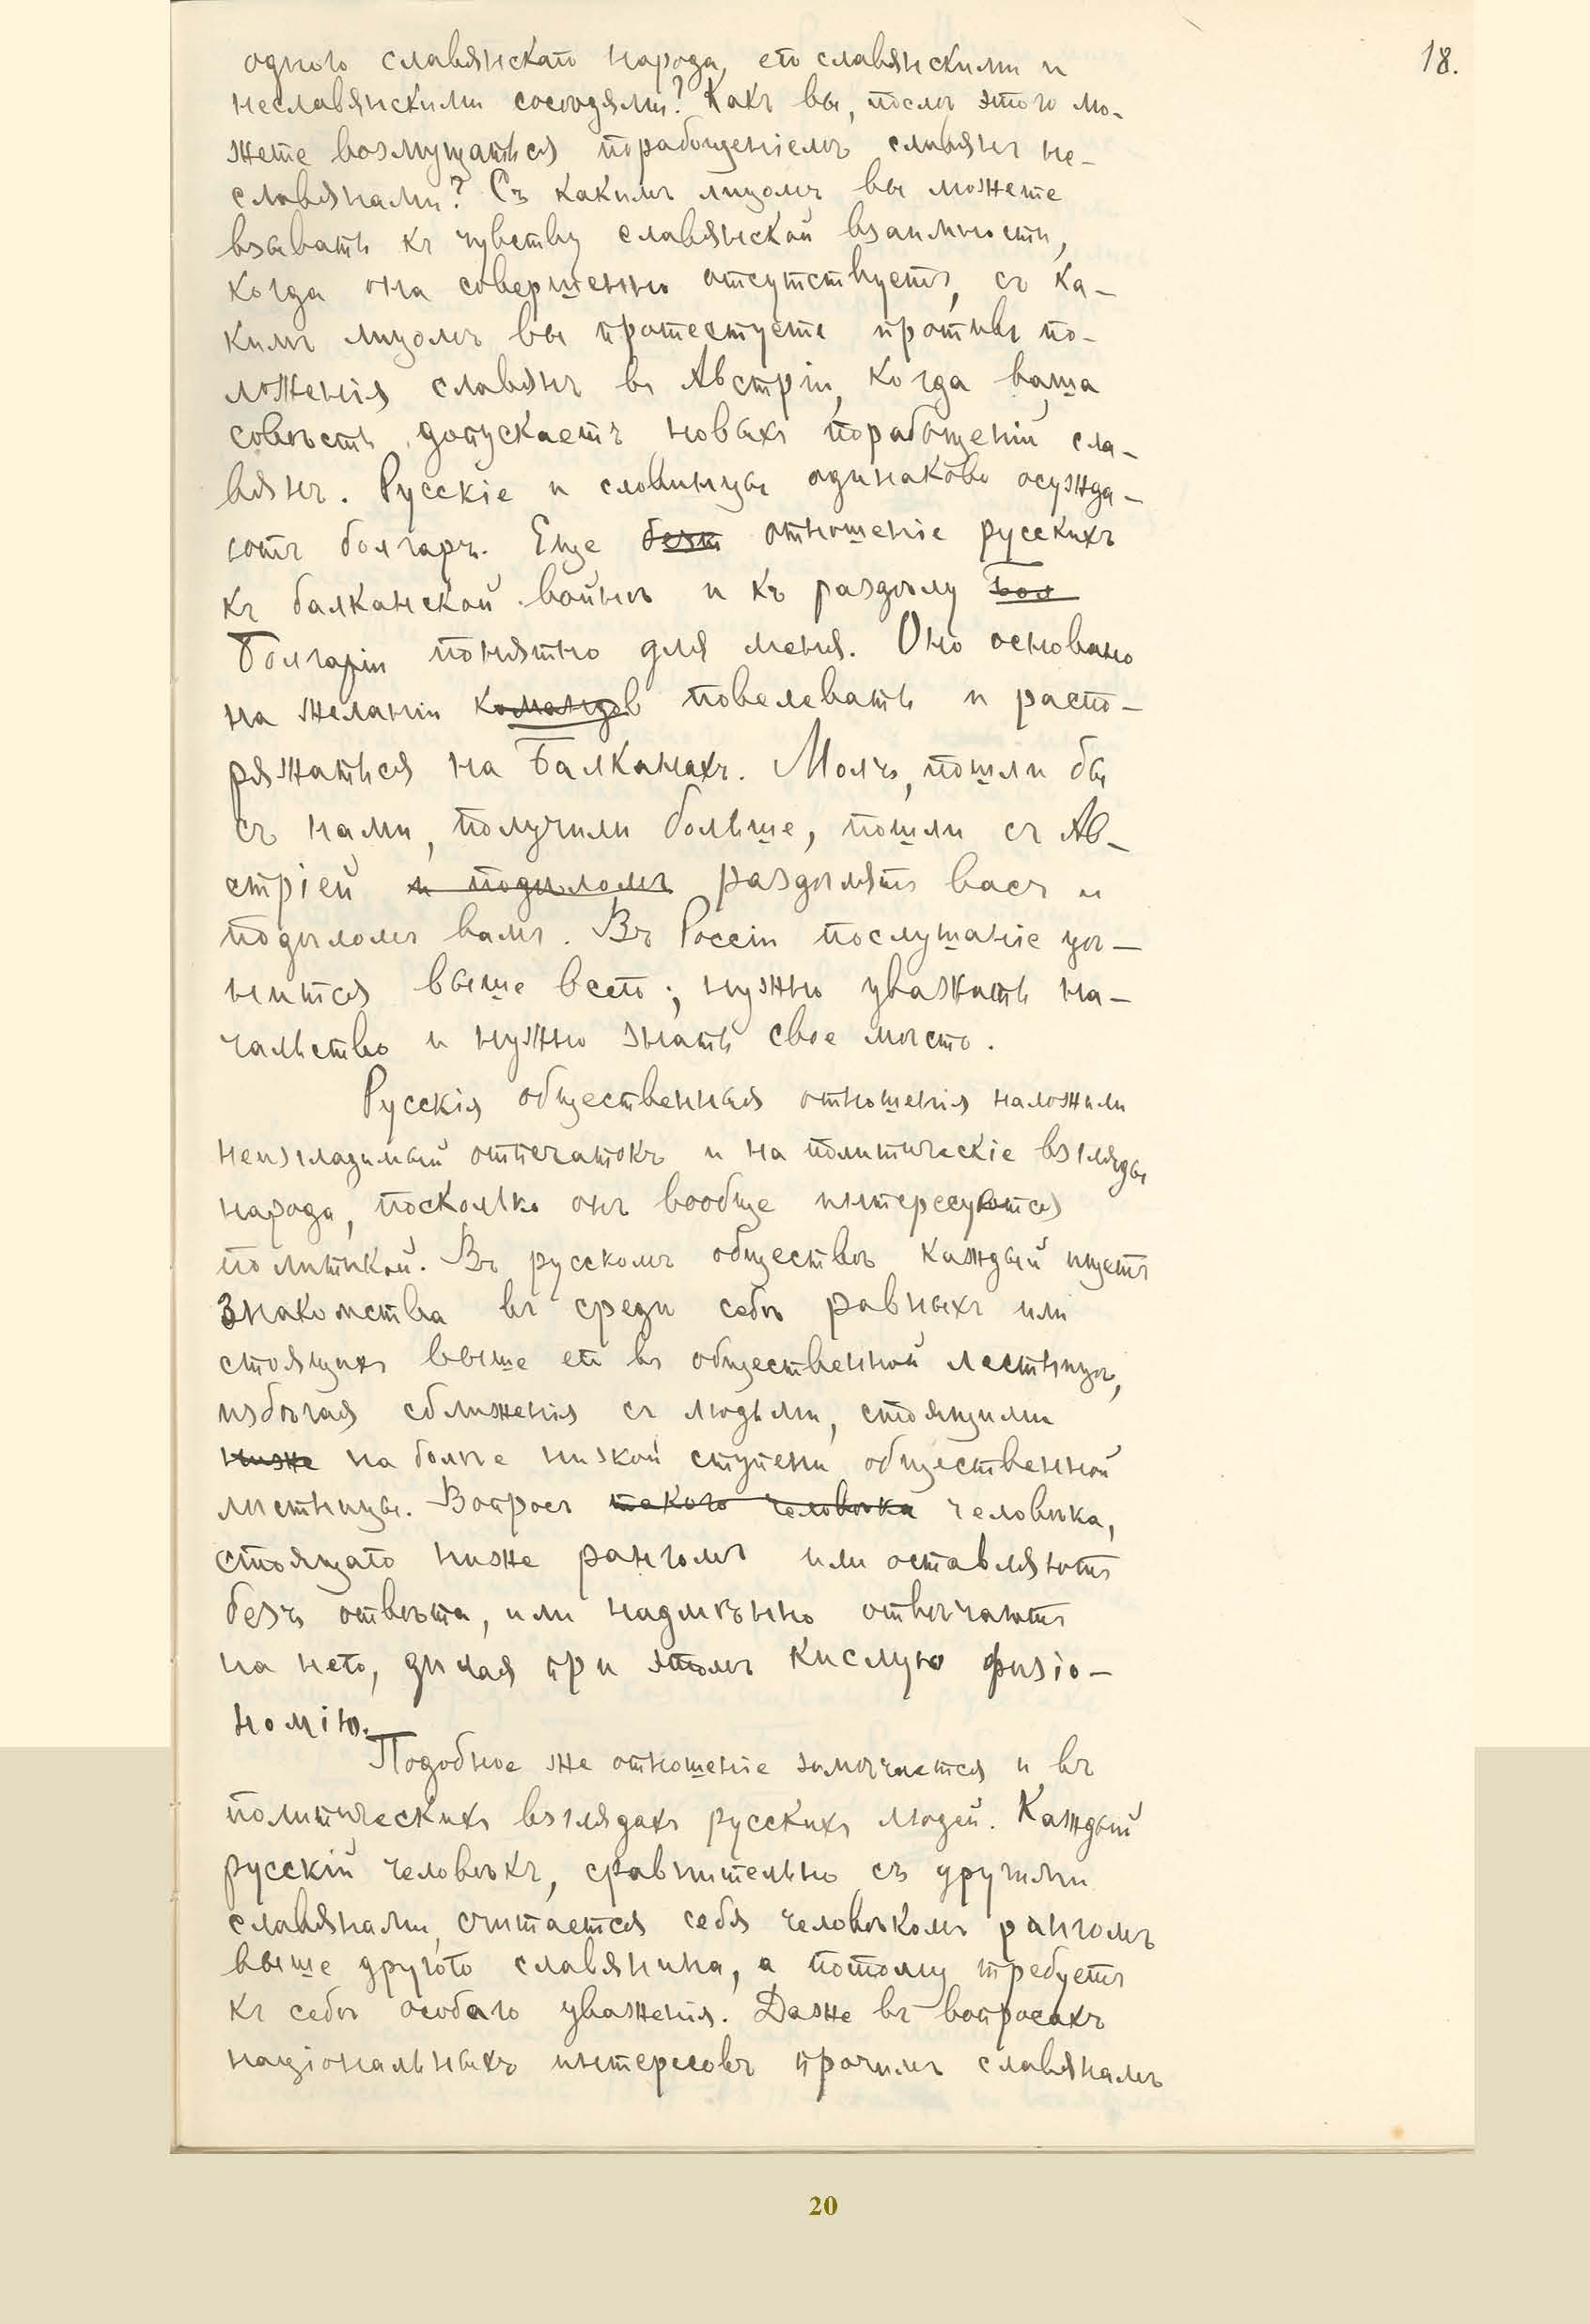 18.
одного славянскаго народа, его славянскими и
неславянскими сосѣдями? Какъ вы, послѣ этого мо-
жете возмущаться порабощеніемъ славянъ не-
славянами? Съ какимъ лицомъ вы можете
взывать къ чувству славянской взаимности,
когда она совершенно отсутствуетъ, съ ка-
кимъ лицомъ вы протестуете противъ по-
ложенія славянъ въ Австріи, когда ваша
совѣсть допускаетъ новыхъ порабощеній сла-
вянъ. Русскіе и словинцы одинаково осужда-
ютъ болгаръ. Еще безт отношеніе русскихъ
къ балканской войнѣ и къ раздѣлу Бол
Болгаріи понятно для меня. Оно основано
на желаніи командов повелевать и распо-
ряжаться на Балканахъ. Молъ, пошли бы
съ нами, получили больше, пошли съ Ав-
стріей и подѣломъ раздѣлятъ васъ и
подѣломъ вамъ. Въ Россіи послушаніе цѣ-
нится выше всего; нужно уважать на-
чальство и нужно знать свое мѣсто.
Русскія общественныя отношенія наложили
неизгладимый отпечатокъ и на политическіе взгляды
народа, поскольку онъ вообще интересуются
политикой. Въ русскомъ обществѣ каждый ищетъ
знакомства въ среди себѣ равныхъ или
стоящихъ выше его въ общественной лестницѣ,
избѣгая сближенія съ людьми, стоящими
ниже на болѣе низкой ступени общественной
лѣстницы. Вопросъ такого человѣка человѣка,
стоящаго ниже рангомъ или оставляютъ
безъ отвѣта, или надменно отвѣчаютъ
на него, дѣлая при этомъ кислую физіо-
номію.
Подобное же отношеніе замѣчается и въ
политическихъ взглядахъ русскихъ людей. Каждый
русскій человѣкъ, сравнительно съ другими
славянами, считается себя человѣкомъ рангомъ
выше другого славянина, а потому требуетъ
къ себѣ особаго уваженія. Даже въ вопросахъ
національныхъ интересовъ прочимъ славянамъ
20